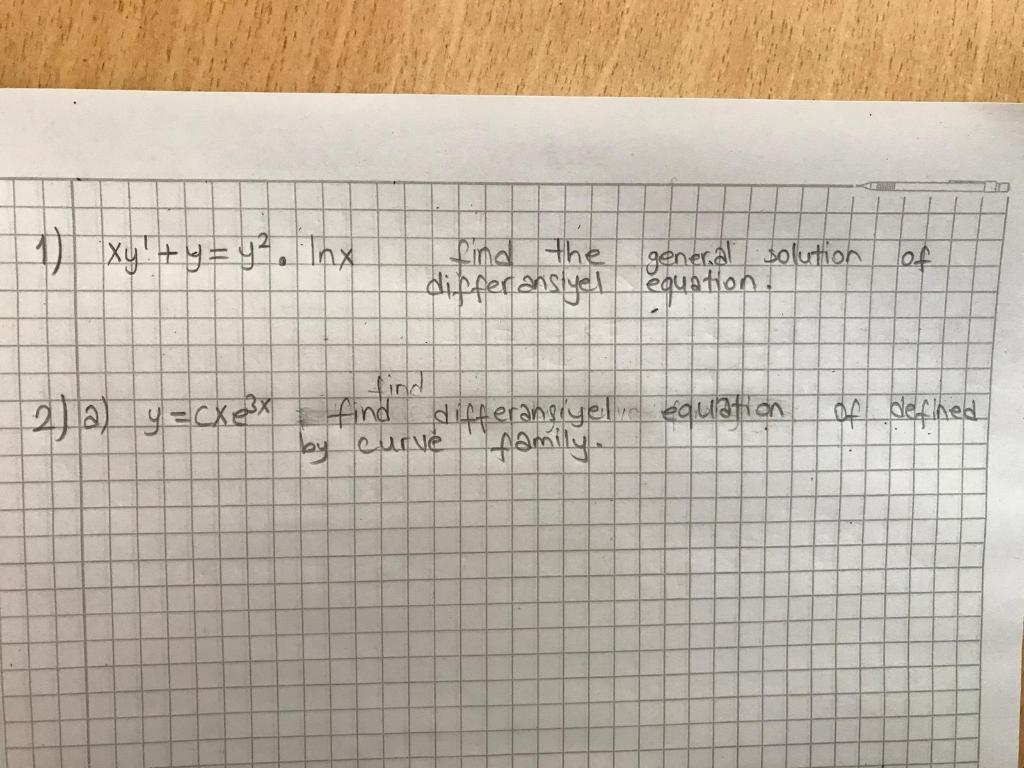 1) xy' + y = y² . lnx find the general solution of
differansiyel equation.
find
2) a) y = cxe³ˣ find differansiyel equation of defined
by curve family.